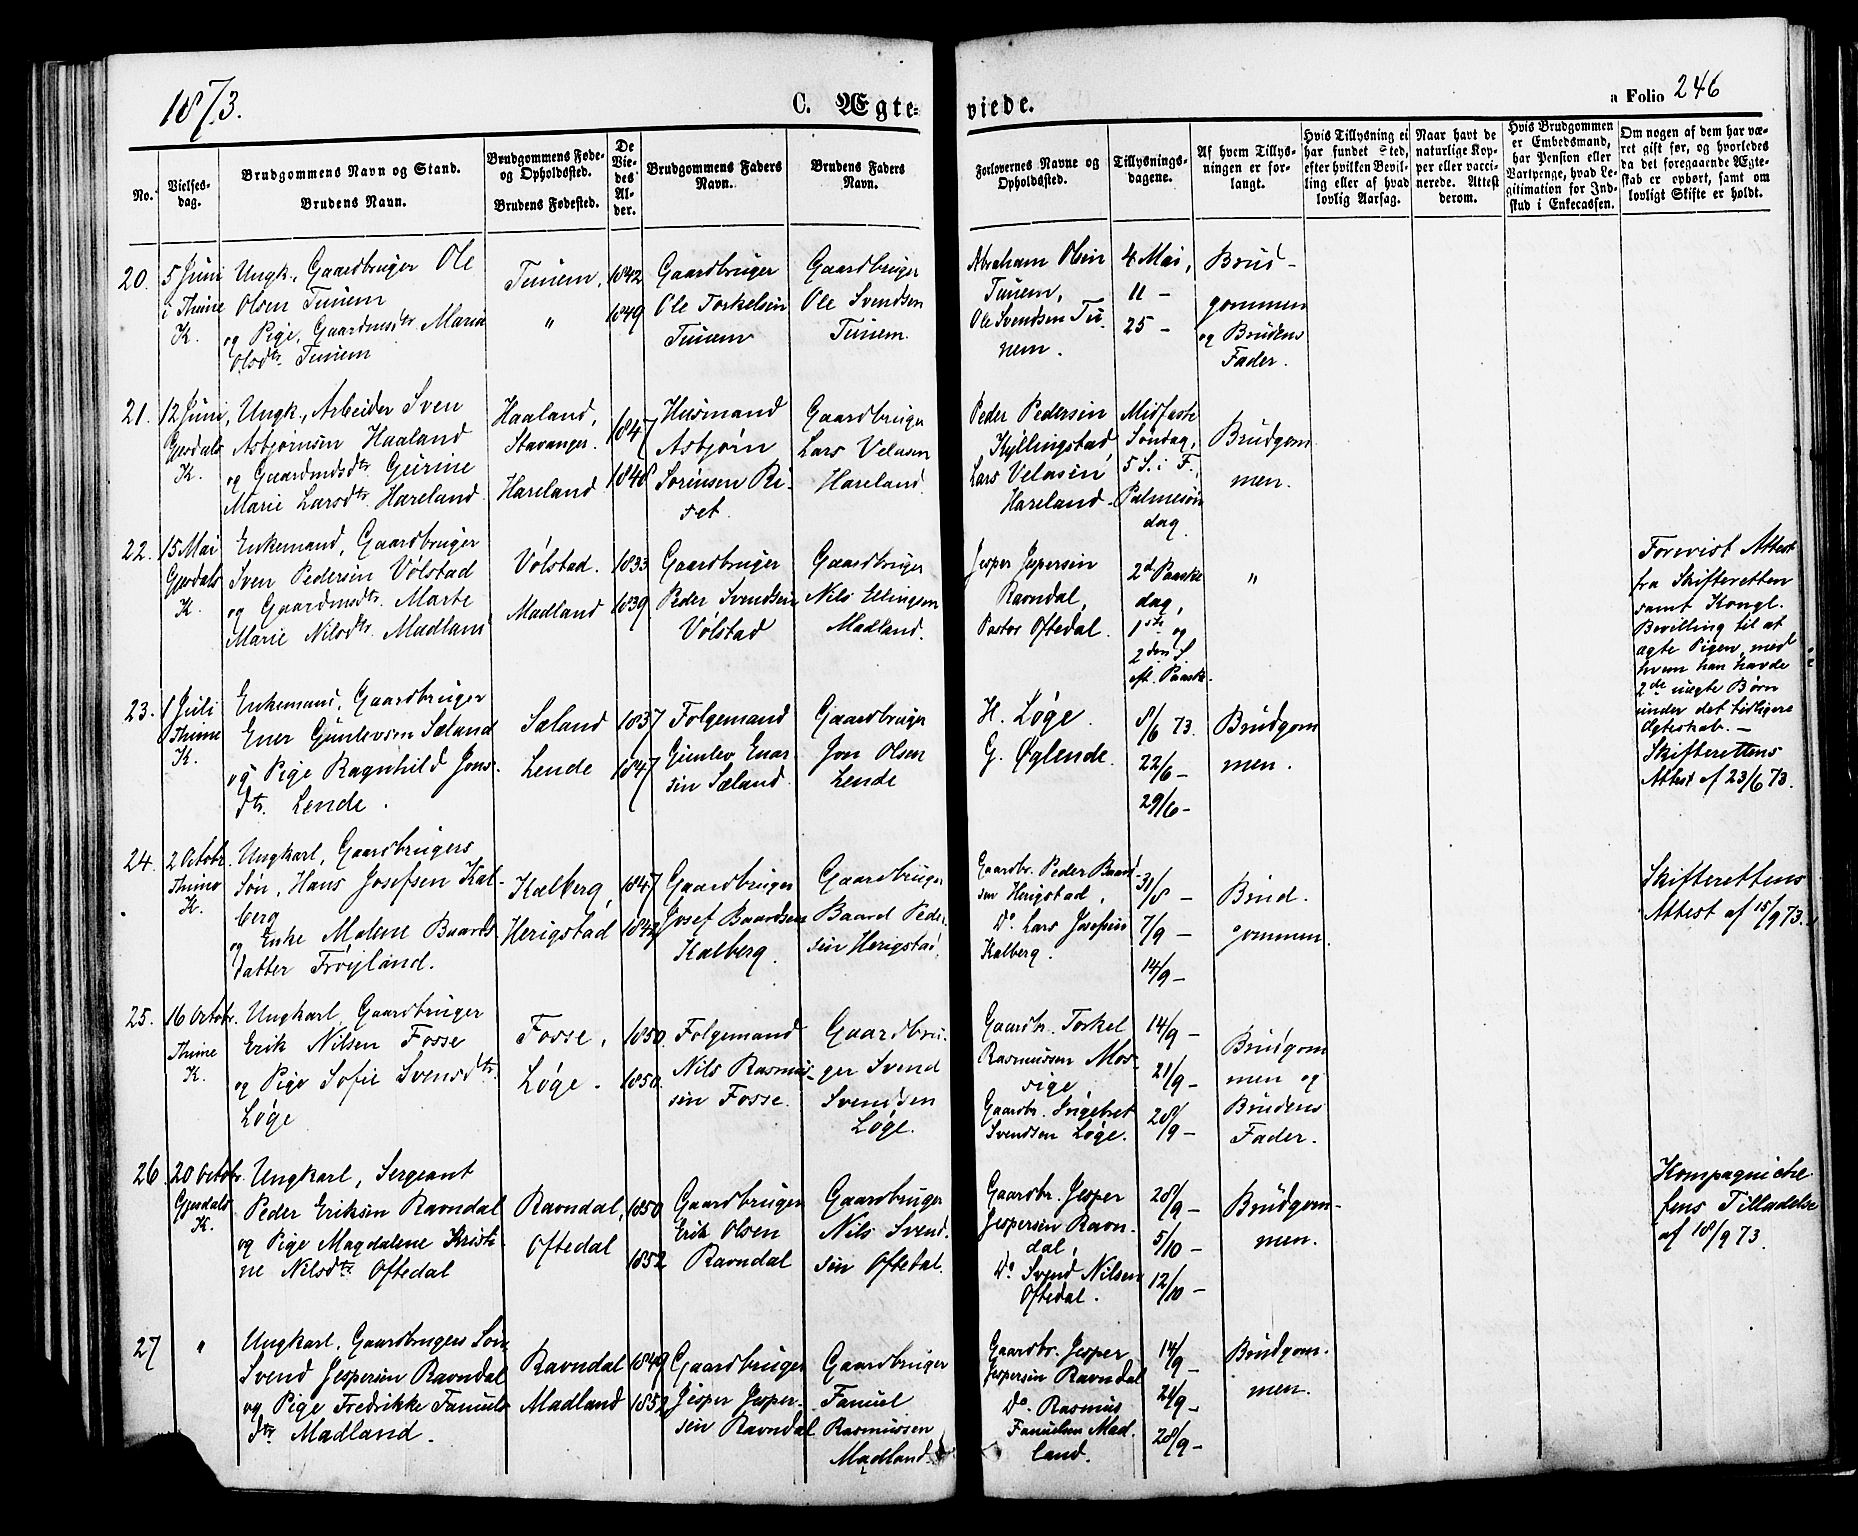 1873.
C. Ægteviede.
a Folio 246
No.
Vielsesdag.
Brudgommens Navn og Stand.
Brudens Navn.
Brudgommens Føde- og Opholdssted.
Brudens Fødested.
De Viedes Alder.
Brudgommens Faders Navn.
Brudens Faders Navn.
Forlovernes Navne og Opholdssted.
Tillysningsdagene.
Af hvem Tillysningen er forlangt.
Hvis Tillysning ei har fundet Sted, efter hvilken Bevilling eller af hvad lovlig Aarsag.
Naar havt de naturlige Kopper eller vaccinerede. Attest derom.
Hvis Brudgommen er Embedsmand, har Pension eller Vartpenge, hvad Legitimation for Indskud i Enkecassen.
Om nogen af dem har været gift før, og hvorledes da det foregaaende Ægteskab er ophørt, samt om lovligt Skifte er holdt.
20.
5 Juni
i Thime
K.
Ungk., Gaardbruger Ole
Olsen Tunem
og Pige, Gaardmdsdtr Maria
Olsdtr. Tunem
Tunem,
"
1842
1849
Gaardbruger
Ole Torkelsen
Tunem
Gaardbruger
Ole Svendsen
Tunem.
Abraham Olsen
Tunem,
Ole Svendsen Tu-
nem.
4 Mai,
11 –
25 –
Brud-
gommen
og Brudens
Fader.
21.
12 Juni,
Gjesdals
K.
Ungk., Arbeider Sven
Asbjørnsen Haaland
og Gaardmdsdtr Geirine
Marie Larsdtr. Hareland
Haaland,
Stavanger.
Hareland
1847
1848
Husmand
Asbjørn
Sørensen Ri-
set.
Gaardbruger
Lars Velasen
Hareland.
Peder Pedersen
Kyllingstad,
Lars Velasen
Hareland.
Midfaste
Søndag,
5 S. i F.
Palmesøn
dag.
Brudgom
men.
22.
15 Mai
Gjesdals
K.
Enkemand, Gaardbruger
Sven Pedersen Vølstad
og Gaardmdsdtr. Marte
Marie Nilsdtr. Madland
Vølstad.
Madland
1833
1839.
Gaardbruger
Peder Svendsen
Vølstad
Gaardbruger
Nils Ellingsen
Madland.
Jesper Jespersen
Ravndal,
Pastor Oftedal.
2d Paaske
dag,
1ste og
2den S
eft. Paaske.
"
Forevist Attest
fra Skifteretten
samt Kongl.
Bevilling til at
ægte Pigen, med
hvem han havde
2de uægte Børn
under det tidligere
Ægteskab. –
23.
1 Juli
Thime
K.
Enkemand, Gaardbruger
Ener Gunlevsen Sæland
og Pige Ragnhild Jons-
dtr. Lende.
Sæland
Lende
1837
1847
Folgemand
Gunlev Enar
sen Sæland.
Gaardbruger
Jon Olsen
Lende
H. Løge.
G. Øglende.
8/6 73.
22/6 –
29/6 –
Brudgom
men.
Skifterettens
Attest af 23/6 73.
24.
2 Octobr.
Thime
K.
Ungkarl, Gaardbrugers
Søn, Hans Josefsen Kal-
berg
og Enke Malene Baards
datter Frøyland.
Kalberg,
Herigstad
1847
1842
Gaardbruger
Josef Baardsen
Kalberg.
Gaardbruger
Baard Peder
sen Herigstad.
Gaardbr. Peder Baard-
sen Herigstad,
Do. Lars Josefsen
Kalberg.
31/8 –
7/9 –
14/9 –
Brud.
gommen.
Skifterettens
Attest af 15/9 73.
25.
16 Octobr.
Thime
K.
Ungkarl, Gaardbruger
Erik Nilsen Fosse
og Pige Sofie Svensdtr.
Løge
Fosse,
Løge.
1850.
1850.
Folgemand
Nils Rasmus-
sen Fosse.
Gaardbru-
ger Svend
Svendsen
Løge.
Gaardb. Torkel
Rasmussen Mos-
sige,
Gaardbr. Ingebret
Svendsen Løge.
14/9 –
21/9 –
28/9 –
Brudgom
men og
Brudens
Fader.
26.
20 Octobr.
Gjesdals
K.
Ungkarl, Sergeant
Peder Eriksen Ravndal
og Pige Magdalene Kristi
ne Nilsdtr. Oftedal
Ravndal,
Oftedal
1850
1852
Gaardbruger
Erik Olsen
Ravndal
Gaardbruger
Nils Svend.
sen Oftedal.
Gaardbr. Jesper
Jespersen Ravn-
dal,
Do. Svend Nilsen
Oftedal.
28/9 –
5/10 –
12/10 –
Brudgom-
men.
Kompagniche
fens Tilladelse
af 18/9 73.
27
"
Ungkarl, Gaardbrugers Søn
Svend Jespersen Ravndal
og Pige Fredrikke Fanuels
dtr. Madland.
Ravndal
Madland
1849
1852
Gaardbruger
Jesper Jesper-
sen Ravndal
Gaardbruger
Fanuel
Rasmussen
Madland.
Gaardbr. Jesper
Jespersen Ravndal
Do. Rasmus
Fanuelsen Mad.
land.
14/9 –
21/9 –
28/9 –
Brudgom.
men.